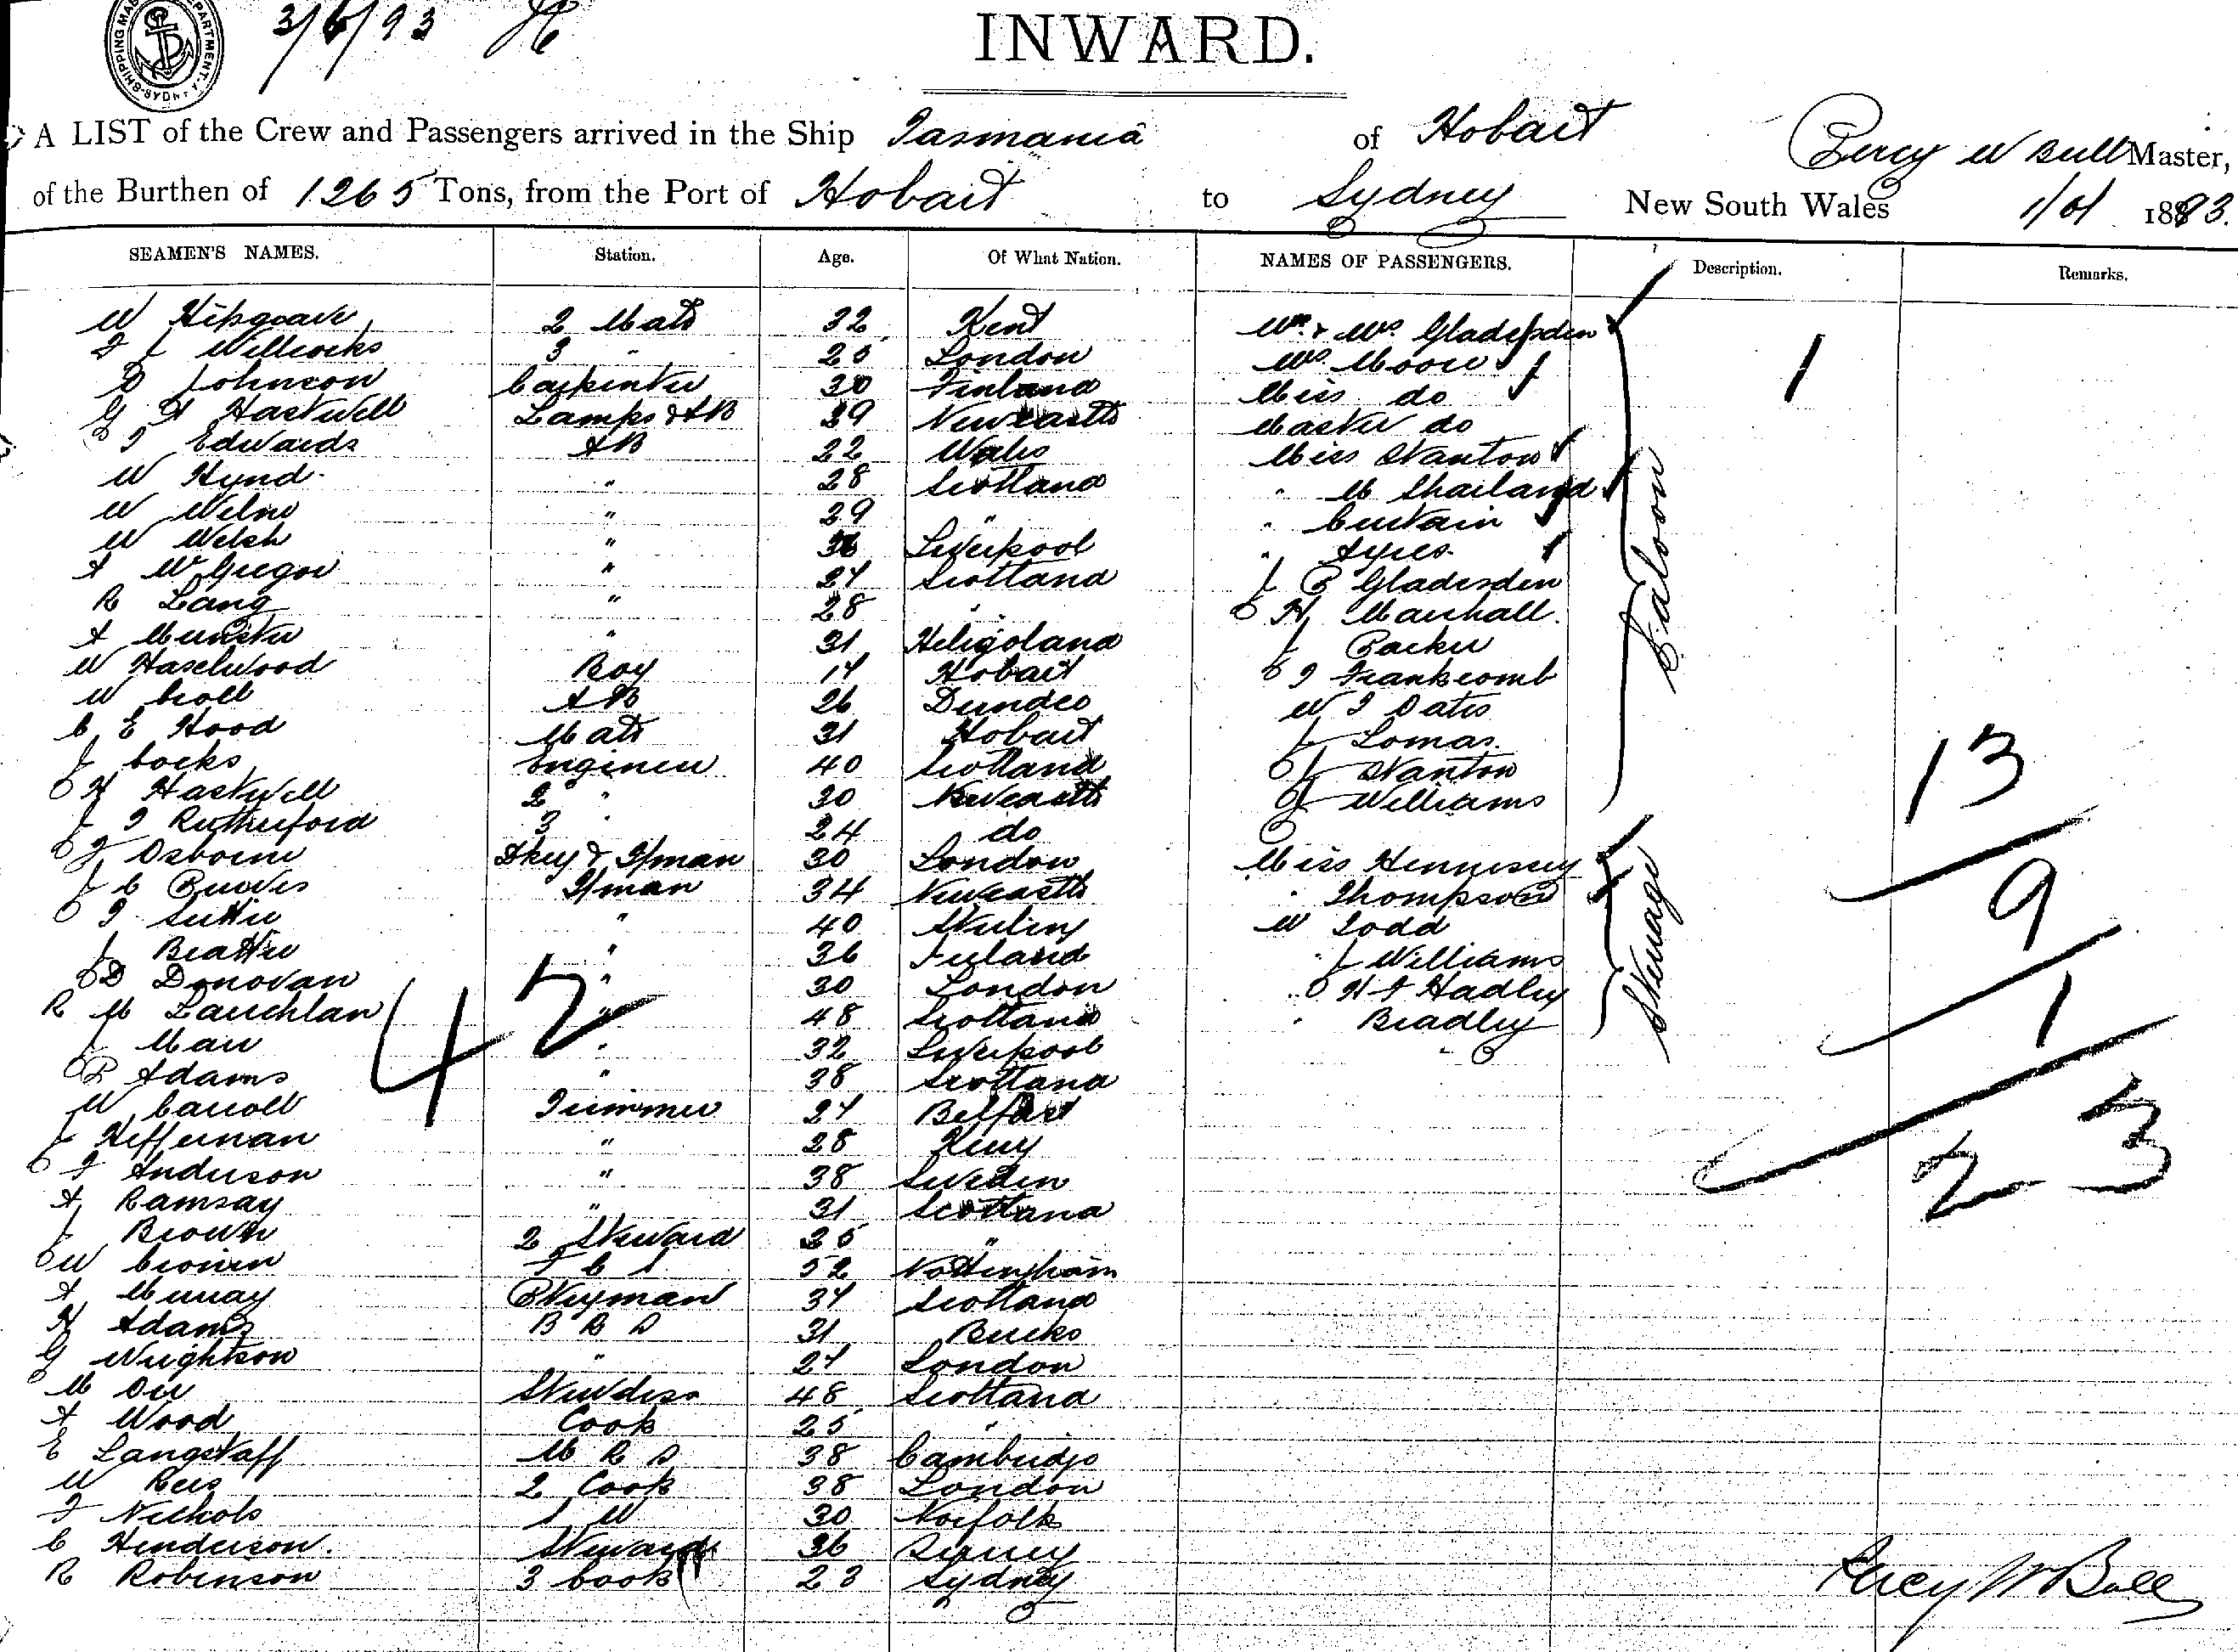 SHIPPING MASTER'S DEPARTMENT SYDNEY
3/6/93
INWARD.
A LIST of the Crew and Passengers arrived in the Ship Tasmania of Hobart Percy W Bull Master,
of the Burthen of 1265 Tons, from the Port of Hobart to Sydney New South Wales 1893.
SEAMEN'S NAMES. Station. Age. Of What Nation. NAMES OF PASSENGERS. Description. Remarks.
W Hipgrave 2 Mate 32 Kent Mr & Mrs Gladesden 1
J Willcocks 3 " 25 London Mrs Moore
D Johnson Carpenter 30 Finland Miss do
G H Hastwell Lamps & AB 29 Newcastle Master do
T Edwards AB 22 Wales Miss Stanton
W Hynd " 28 Scotland " M Shailand
W Milne " 29 " " Curtain
W Welsh " 36 Liverpool " Ayres
A McGregor " 24 Scotland J P Gladesden
R Lang " 28 " H Marshall
A Munster " 31 Heligoland J Packer
W Haselwood Boy 14 Hobart T Frankcomb
W Croll AB 26 Dundee W T Oates
C E Hood Mate 31 Hobart J Lomas
J Cocks Engineer 40 Scotland J Stanton
H Hastwell 2 " 30 Newcastle J Williams
Saloon
13
J T Rutherford 3 " 24 do
J Osborne Skey & F/man 30 London Miss Hennessy
J C Purves F/man 34 Newcastle " Thompson
T Suttie " 40 Stirling W Todd
J Beattie " 36 Ireland " J Williams
D Donovan " 30 London " H T Hadley
R McLauchlan " 48 Scotland " Bradley
Steerage
9
1
J Marr " 32 Liverpool
P Adams " 38 Scotland
42
W Carroll Trimmer 24 Belfast
J Heffernan " 28 Kerry
23
T Anderson " 38 Sweden
A Ramsay " 31 Scotland
J Brown 2 Steward 25 "
W Cronin F C S 52 Nottingham
A Murray Ptryman 34 Scotland
H Adams B R S 31 Bucks
G Wrightson " 24 London
M Orr Stewdess 48 Scotland
A Wood Cook 25 "
E Langstaff M R S 38 Cambridge
W Rees 2 Cook 38 London
F Nichols S W 30 Norfolk
C Henderson. Steward 36
R Robinson 3 Cook 23 Sydney
Percy W Bull